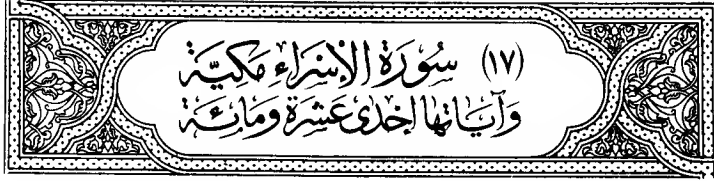 (١٧) سُورَةُ الْإِسْرَاءِ مَكِيَّة
وَآيَاتُهَا إِحْدَى عَشْرَة وَمَائِة